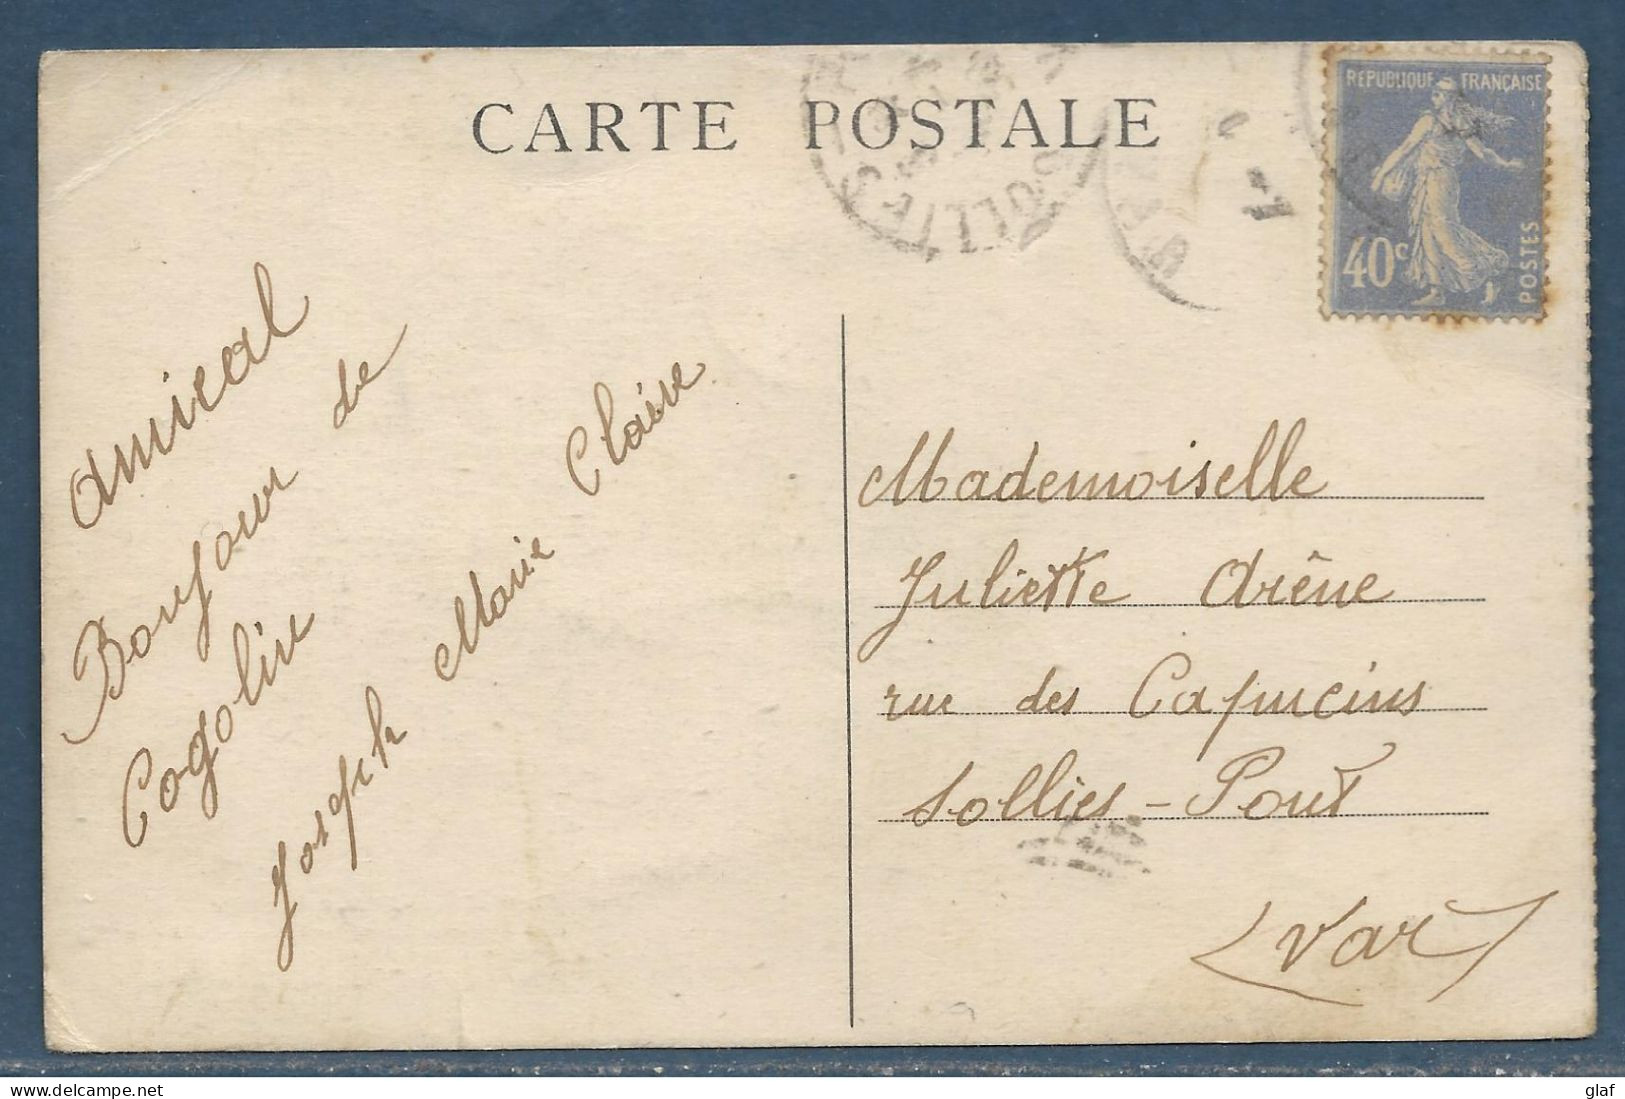 CARTE POSTALE
SOLLIES
RÉPUBLIQUE FRANÇAISE
40c
POSTES
Amical
Bonjour de
Cogolin
Joseph Marie Claire
Mademoiselle
Juliette Arène
rue des Capucins
Sollies-Pont
(Var)
www.delcampe.net
glaf